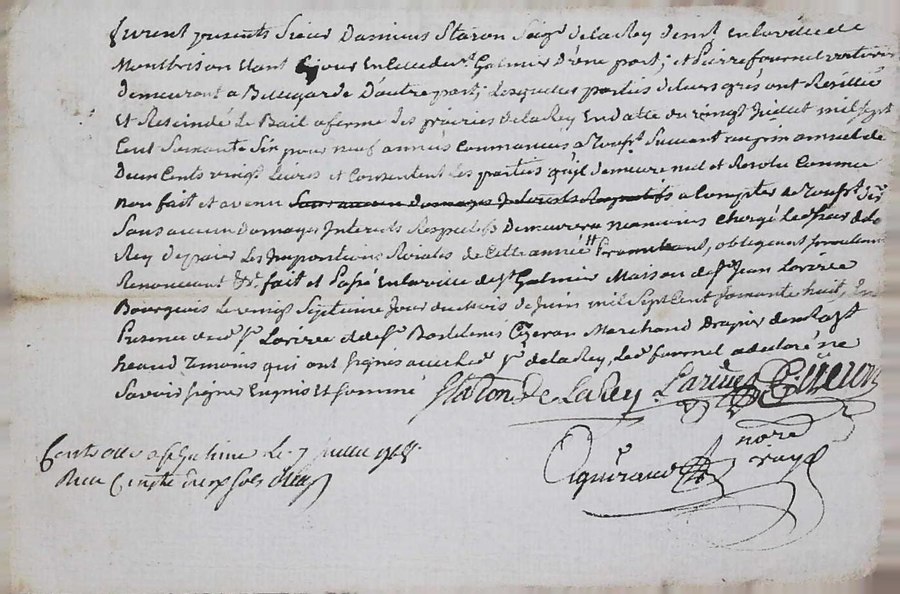 furent presents Sieur Damien Staron Seigr delaRey demt en laville de
Montbrison Etant Ce jour Enlaville de st Galmier D'une part; et Pierre fournel
demeurant a Bellegarde Dautre part; Lesquelles parties deleurs grés ont Resillié
Et Rescindé Le Bail a ferme des prairies delaRey En datte du vingt Juillet mil sept
Cent Soixante Six pour neuf années Commancées a suivant au prix annuel de
Deux Cents vingt Livres et Consentent Les parties qu'il demeure nul et Resolu Comme
non fait et avenu Sans aucun domages Interests Respectifs a Compter de
Sans aucun Domages Interets Respectifs Demeurera neanmoins Chargé Led Sieur dela
Rey de paier Les Impositions Roiales de Cette année obligeant
Renonceant &c fait et Passé En laville de st Galmier Maison de sr Jean Larivee
Bourgeois Le vingt Septieme Jour du mois de Juin mil Sept Cent Soixante huit, En
Presence du sr Larivee et de sr Cizeron Marchand Drapier de
heand Temoins qui ont signés avec led sr delaRey, Led fournel a declaré ne
Savoir signer Enquis et Sommé
Staron De LaRey Larivee Cizeron
Controllé a St Galmier Le 7 juillet 1768
Recu Cinq sols
Pguiraud nore
royal